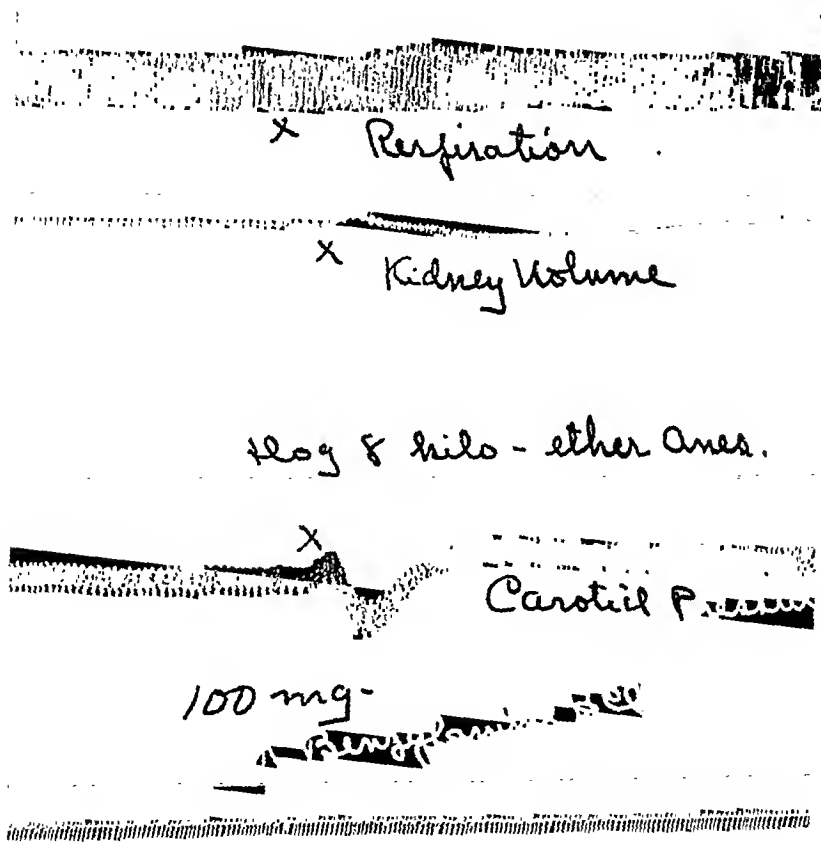 X Respiration
X Kidney Volume
Dog 8 kilo - ether Anes.
X
Carotid P
100 mg-